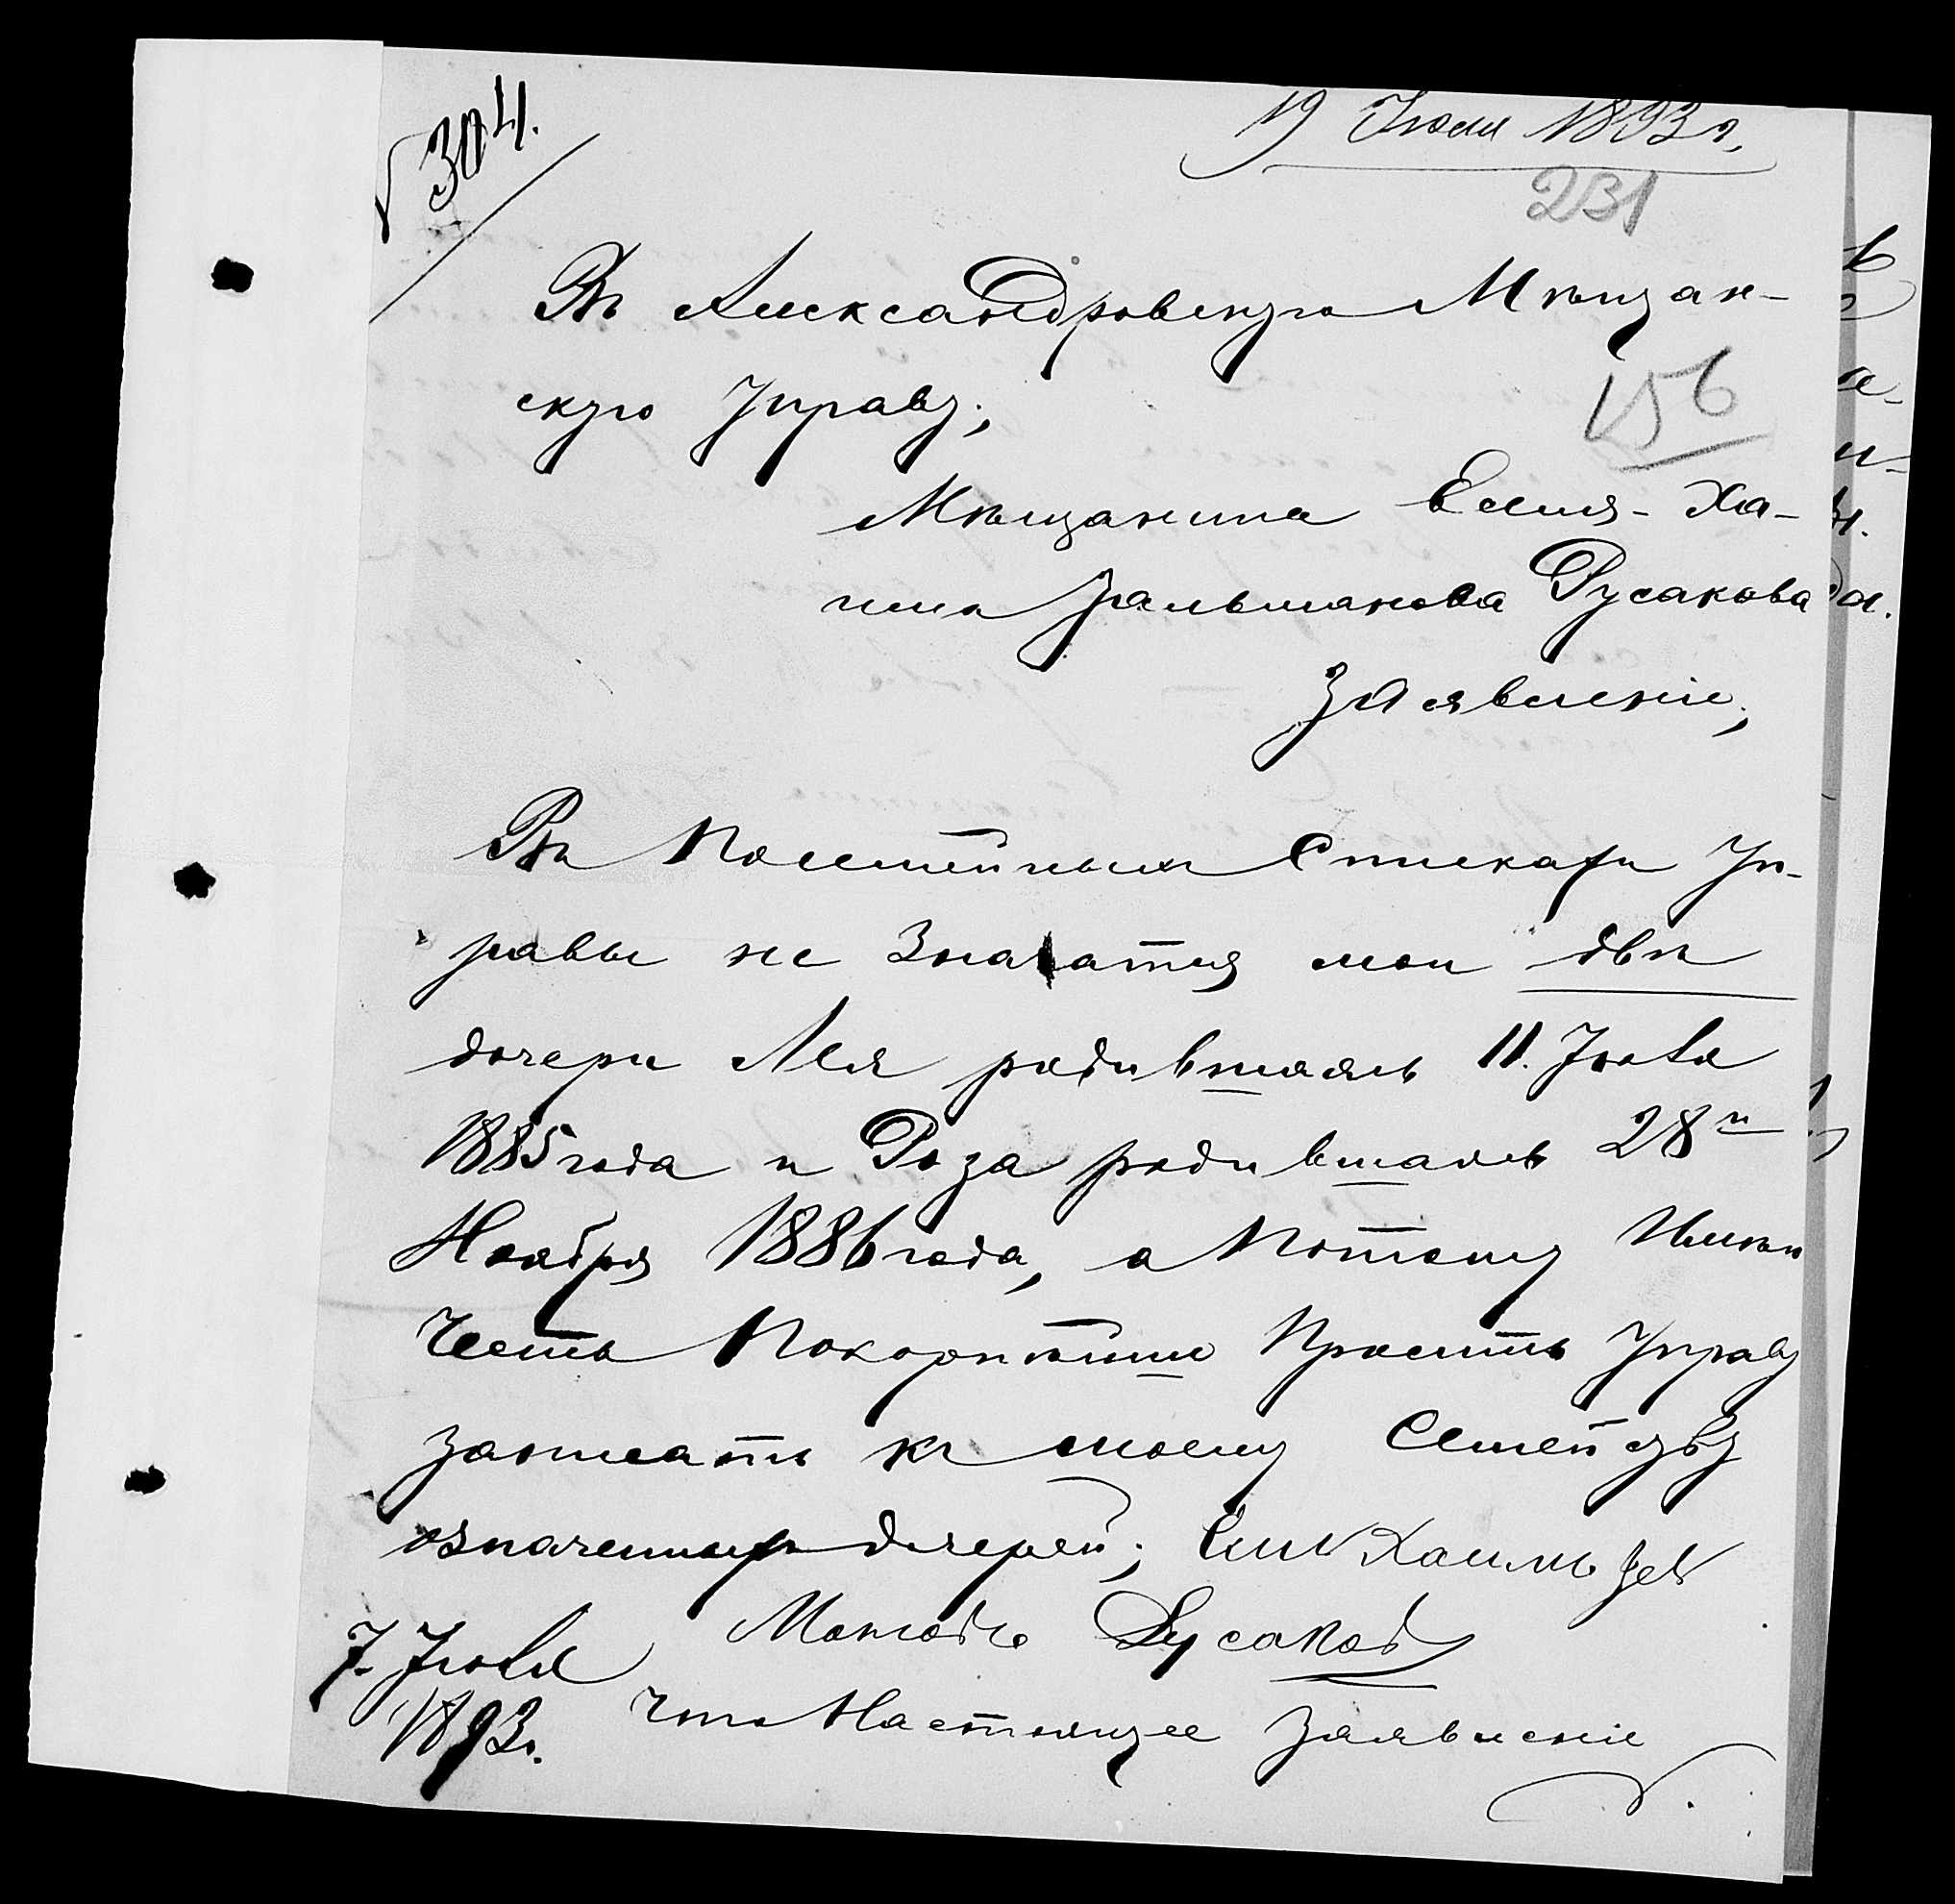 304.
19 Июля 1893 г.
231
Въ Александровскую Мѣщан-
156
скую Управу;
Мѣщанина Еля-Ха-
има Зальманова Русакова
Заявленіе,
Въ Посемейныхъ Спискахъ Уп-
равы не Значатся мои двѣ
дочери Лея родившаясь 11. Іюля
1885 года и Роза родившаясь 28го
Ноября 1886 года, а Потому Имѣю
Честь Покорнѣйше Просить Управу
записать къ моему Семейству
означенныхъ дочерей;
Русаковъ
7. Іюля
1893.
Что Настоящее Заявленіе